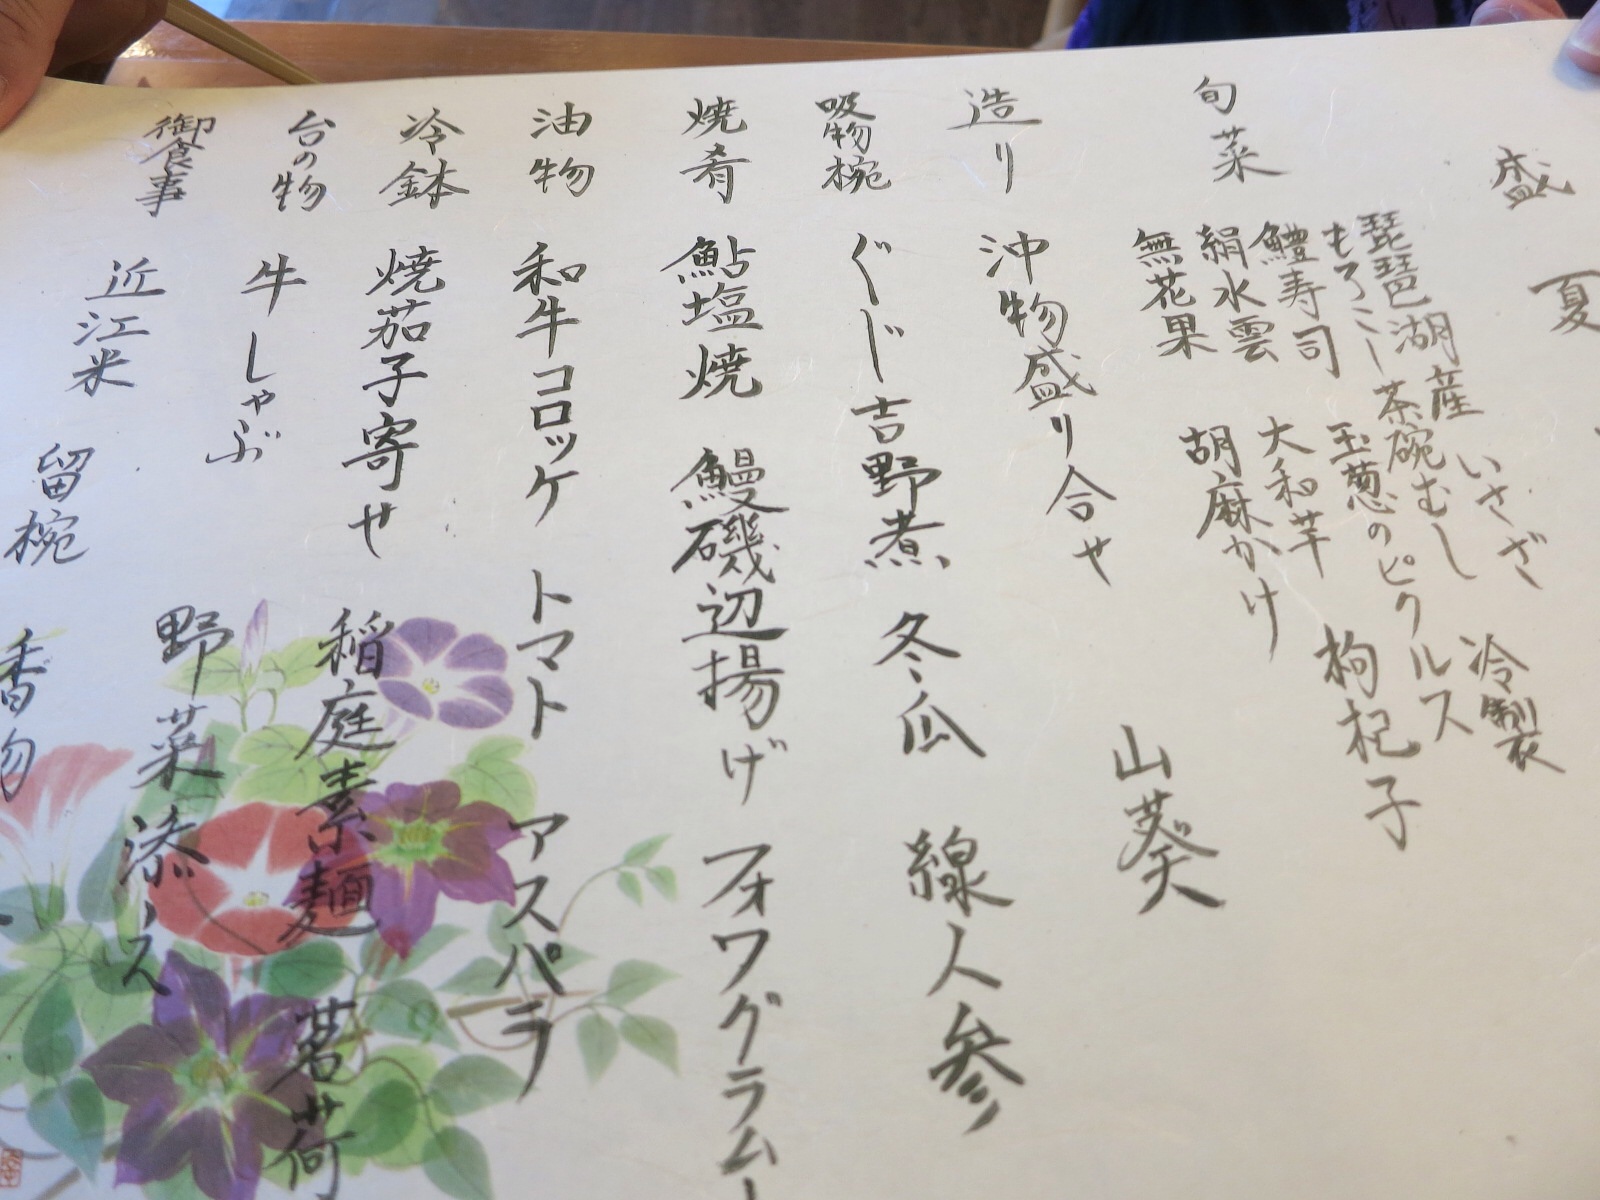 盛夏
旬菜
琵琶湖産 いさざ 冷製
もろこし茶碗むし
玉葱のピクルス 枸杞子
鱧寿司 大和芋
絹水雲 胡麻かけ
無花果
造り 沖物盛り合せ 山葵
吸物椀 ぐじ吉野煮 冬瓜 線人参
焼肴 鮎塩焼 鰻磯辺揚げ フォワグラムー
油物 和牛コロッケ トマト アスパラ
冷鉢 焼茄子寄せ 稲庭素麺 茗荷
台の物 牛しゃぶ 野菜添え
御食事 近江米 留椀 香物